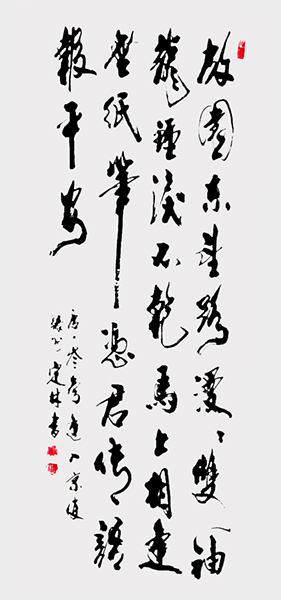 故園東望路漫漫雙袖
龍鍾淚不乾馬上相逢
無紙筆憑君傳語
報平安
唐岑參逢入京使
林書